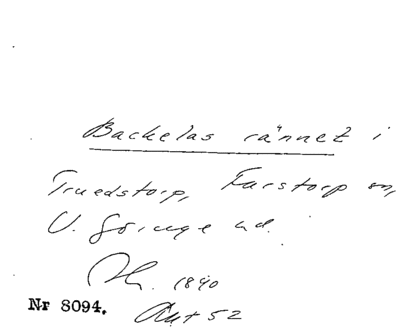 Backelas rännet i
Truedstorp, Farstorp sn,
V. Göinge hd.
1840
Nr 8094. Aut 52